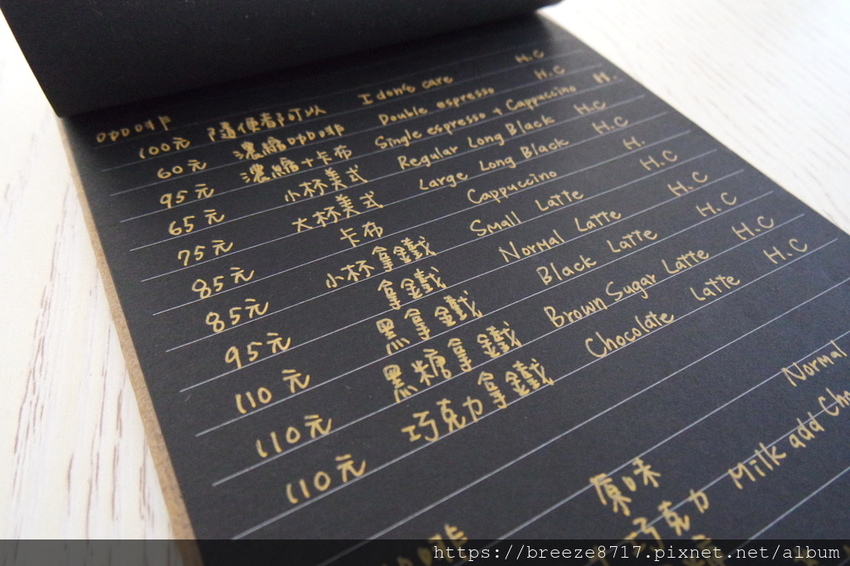 咖啡
100元 隨便都可以 I don't care H.C
60元 濃縮咖啡 Double espresso H.C
95元 濃縮+卡布 Single espresso + Cappuccino H.
65元 小杯美式 Regular Long Black H.C
75元 大杯美式 Large Long Black H.C
85元 卡布 Cappuccino H.
85元 小杯拿鐵 Small Latte H.C
95元 拿鐵 Normal Latte H.C
110元 黑拿鐵 Black Latte H.C
110元 黑糖拿鐵 Brown Sugar Latte H.C
110元 巧克力拿鐵 Chocolate Latte H.C
原味 Normal
巧克力 Milk add Cho
https://breeze8717.pixnet.net/album